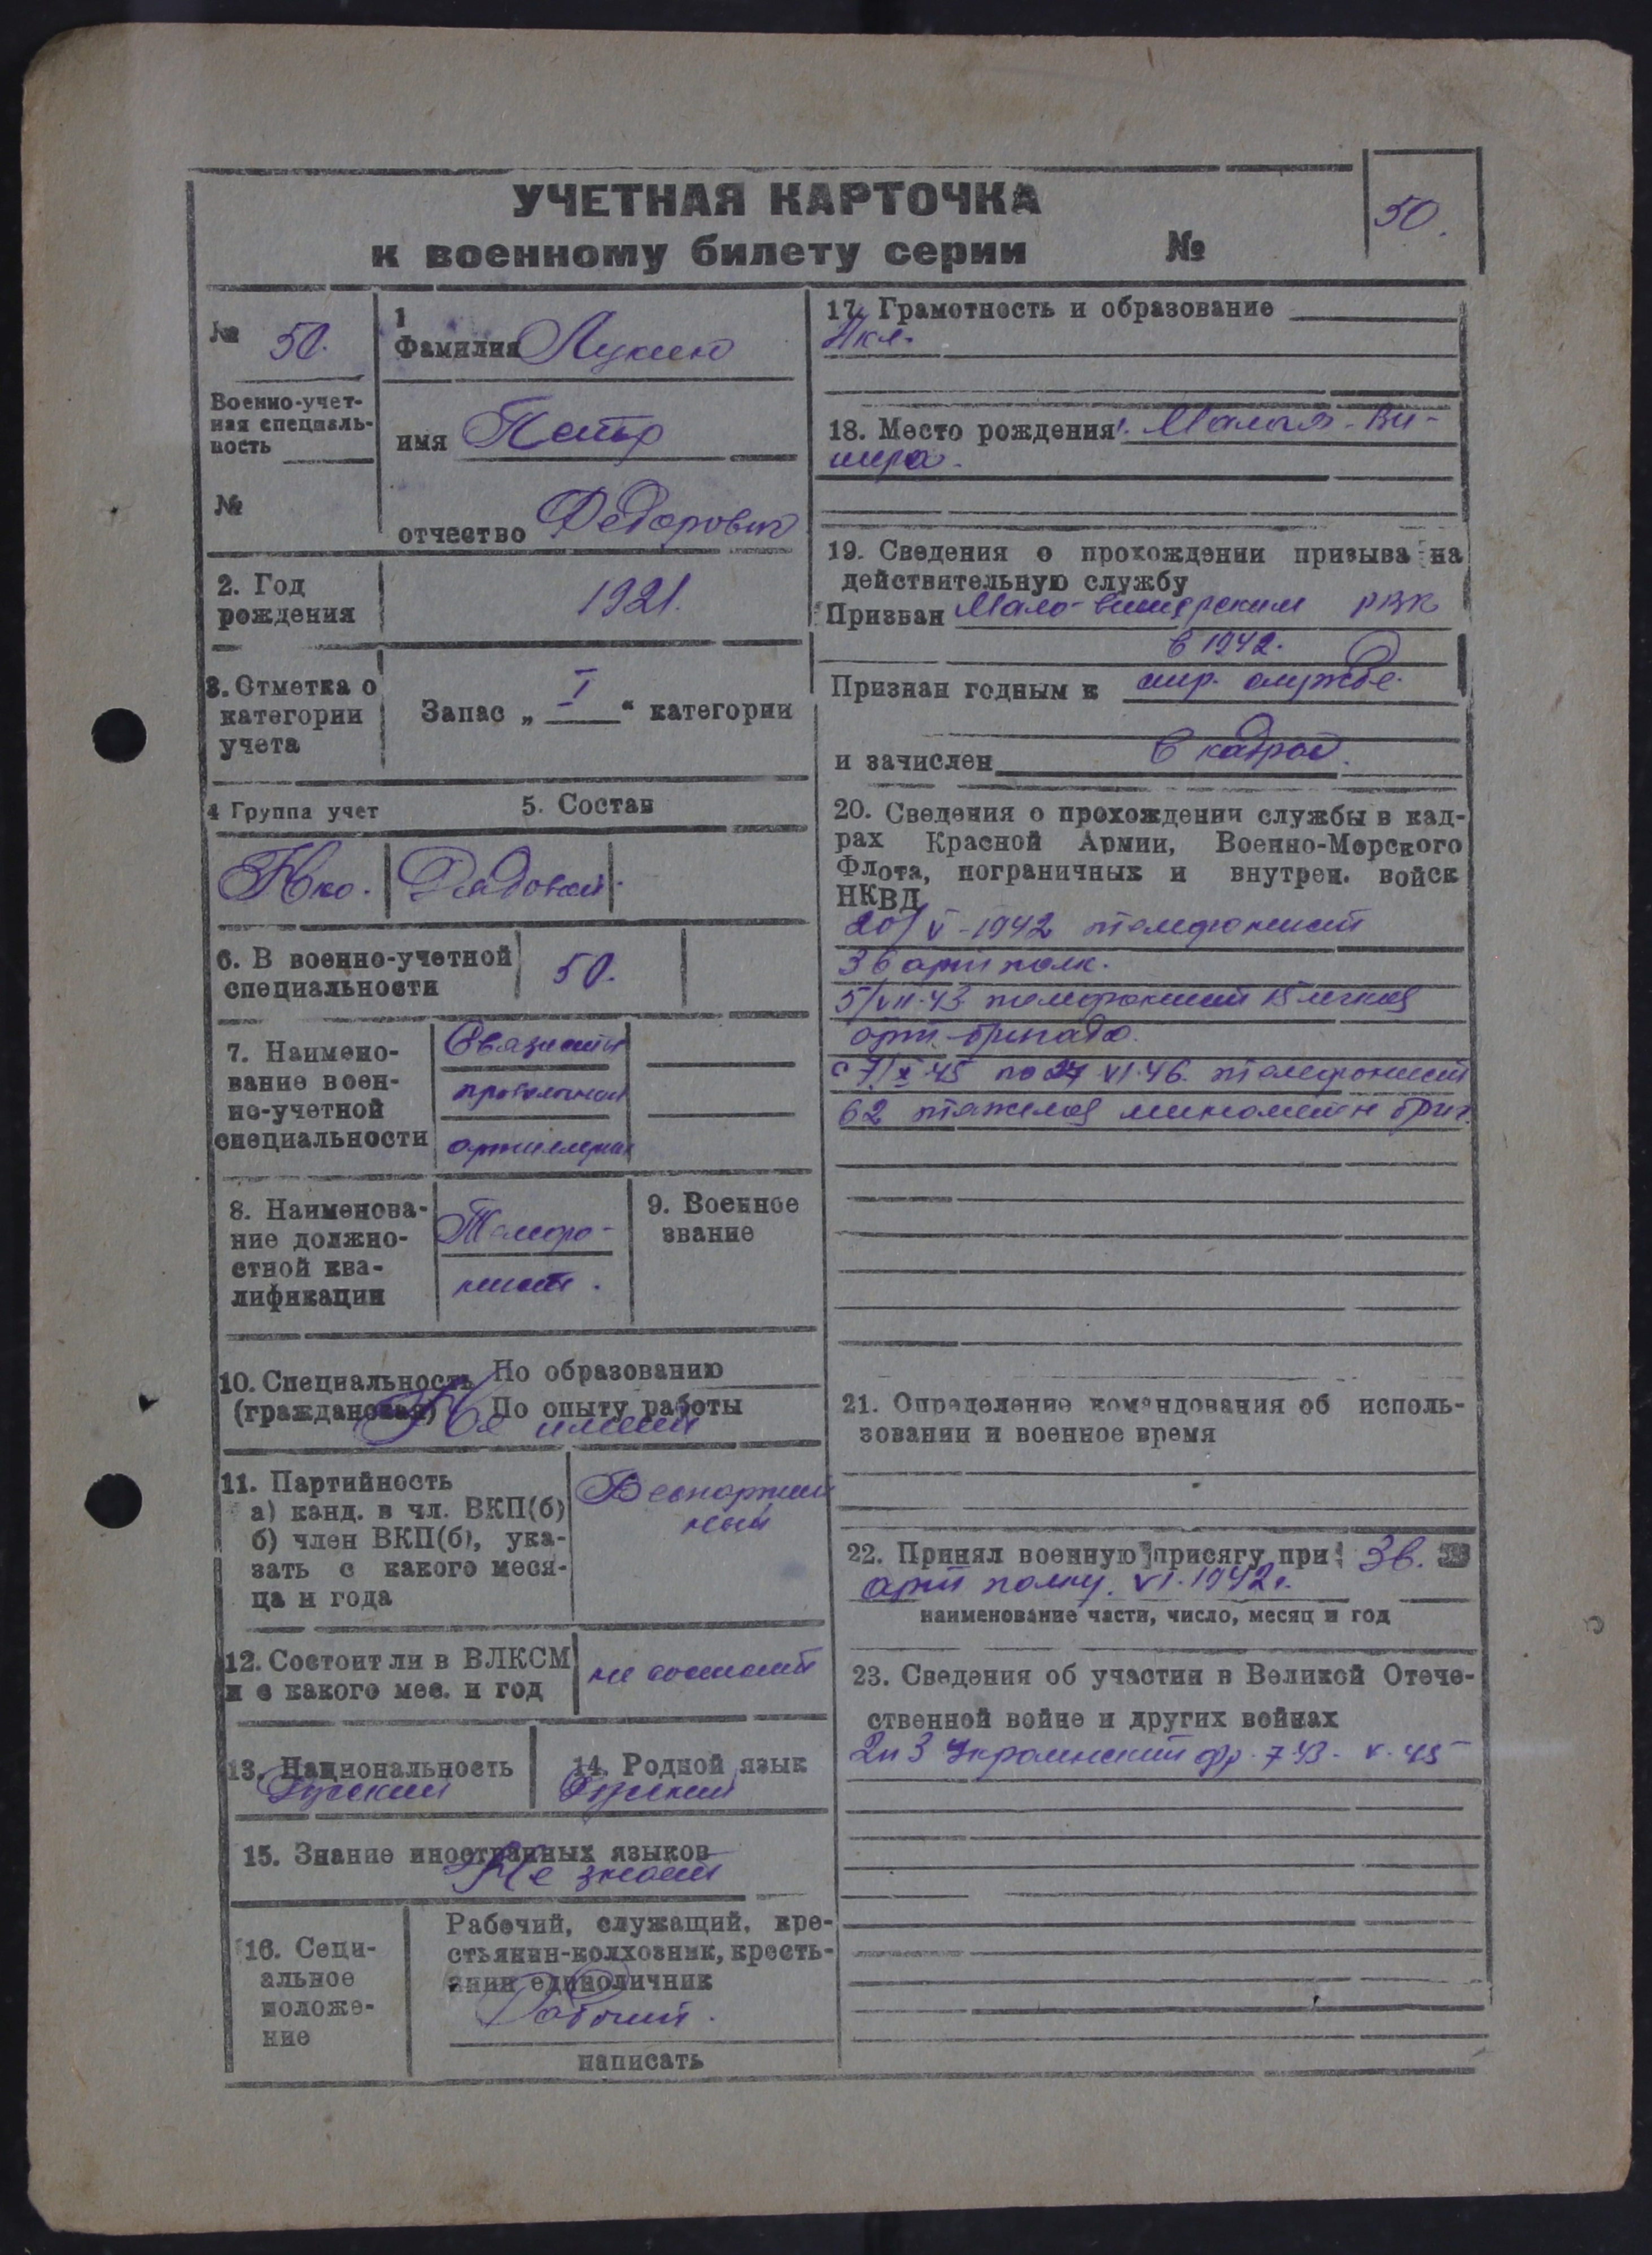 УЧЕТНАЯ КАРТОЧКА
к военному билету серии №
50.
№ 50.
Военно-учет-
ная специаль-
ность
№
1
Фамилия Лукин
имя Петр
отчество Федорович
2. Год
рождения
1921.
3. Отметка о
категории
учета
Запас „ I “ категории
4 Группа учет
5. Состав
Нко.
Рядовой.
6. В военно-учетной
специальности
50.
7. Наимено-
вание воен-
но-учетной
специальности
Связисты
проволочной
артиллерии
8. Наименова-
ние должно-
стной ква-
лификации
Телефо-
нист.
9. Военное
звание
10. Специальность По образованию
(гражданская) По опыту работы
Не имеет
11. Партийность
а) канд. в чл. ВКП(б)
б) член ВКП(б), ука-
зать с какого меся-
ца и года
Беспартий
ный
12. Состоит ли в ВЛКСМ
и с какого мес. и год
не состоит
13. Национальность
Русский
14. Родной язык
Русский
15. Знание иностранных языков
Не знает
16. Соци-
альное
положе-
ние
Рабочий, служащий, кре-
стьянин-колхозник, кресть-
янин единоличник
Рабочий.
написать
17. Грамотность и образование
4 кл.
18. Место рождения г. Малая-Ви-
шера.
19. Сведения о прохождении призыва на
действительную службу
Призван Мало-вишерским РВК
в 1942.
Признан годным к стр. службе.
и зачислен в кадрой.
20. Сведения о прохождении службы в кад-
рах Красной Армии, Военно-Морского
Флота, пограничных и внутрен. войск
НКВД
20/V-1942 телефонист
36 арт полк.
5/VII-43 телефонист 15 легкая
арт-бригада.
с 7/X-45 по 27 VI-46. телефонист
62 тяжелая миномётн бриг.
21. Определение командования об исполь-
зовании и военное время
22. Принял военную присягу при 36.
арт полку. VI.1942г.
наименование части, число, месяц и год
23. Сведения об участии в Великой Отече-
ственной войне и других войнах
2и3 Украинский фр. 7 43 - V-45